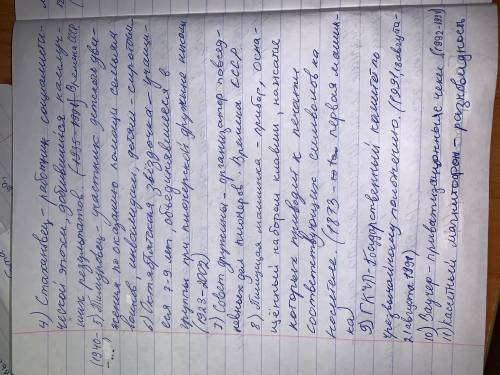 4) Стахановец - работник социалисти-
ческой эпохи, добившийся наслу-
ших результатов (1935 - 1991) Времена СССР
(1940-...)
5) Тимуровец - участник детского дви-
жения по оказанию помощи семьям
воинов, инвалидам, детям-сиротам.
6) Октябрятская звёздочка - учащи-
еся 7-9 лет, объединявшиеся в
группы при пионерской дружине школы
(1923-2002)
7) Совет дружины - организатор повсед-
невных дел пионеров. Времена СССР.
8) Пишущая машинка - прибор, осна-
щённый набором клавиш, нажатие
которых приводит к печати
соответствующих символов на
носителе. (1873 - первая машин-
ка)
9) ГКЧП - Государственный комитет по
чрезвычайному положению. (1991, 18 августа-
21 августа 1991)
10) Ваучер - приватизационные чеки (1992-1994)
11) Кассетный магнитофон - разновидность